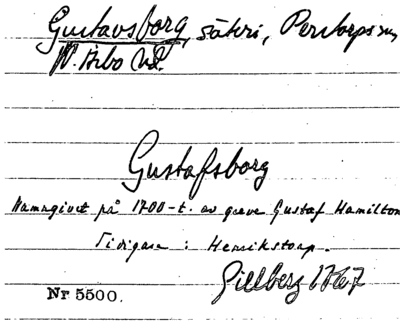 Gustavsborg, säteri, Perstorps sn,
N. Åsbo hd.
Gustafsborg
Namngivet på 1700-t. av greve Gustaf Hamilton
Tidigare : Henrikstorp.
Gillberg 1767
Nr 5500.